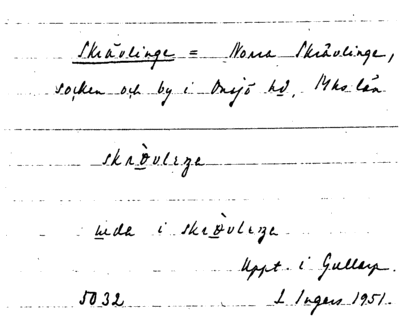 Skrävlinge = Norra Skrävlinge,
socken och by i Onsjö hd, Mhs län
skrävleza
uda i skrävleza
Uppt. i Gullarp.
5032 I Ingers 1951.